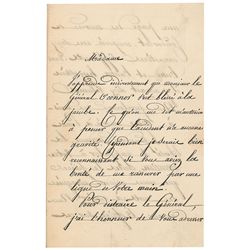 Madame
J'apprends indirectement que monsieur le
Général O'connor s'est blessé à la
jambe. Ce qu'on me dit m'autorise
à penser que l'accident n'a aucune
gravité. Cependant je serais bien
reconnaissant si vous aviez la
bonté de me rassurer par une
ligne de votre main.
Pour distraire le Général
j'ai l'honneur de vous adresser